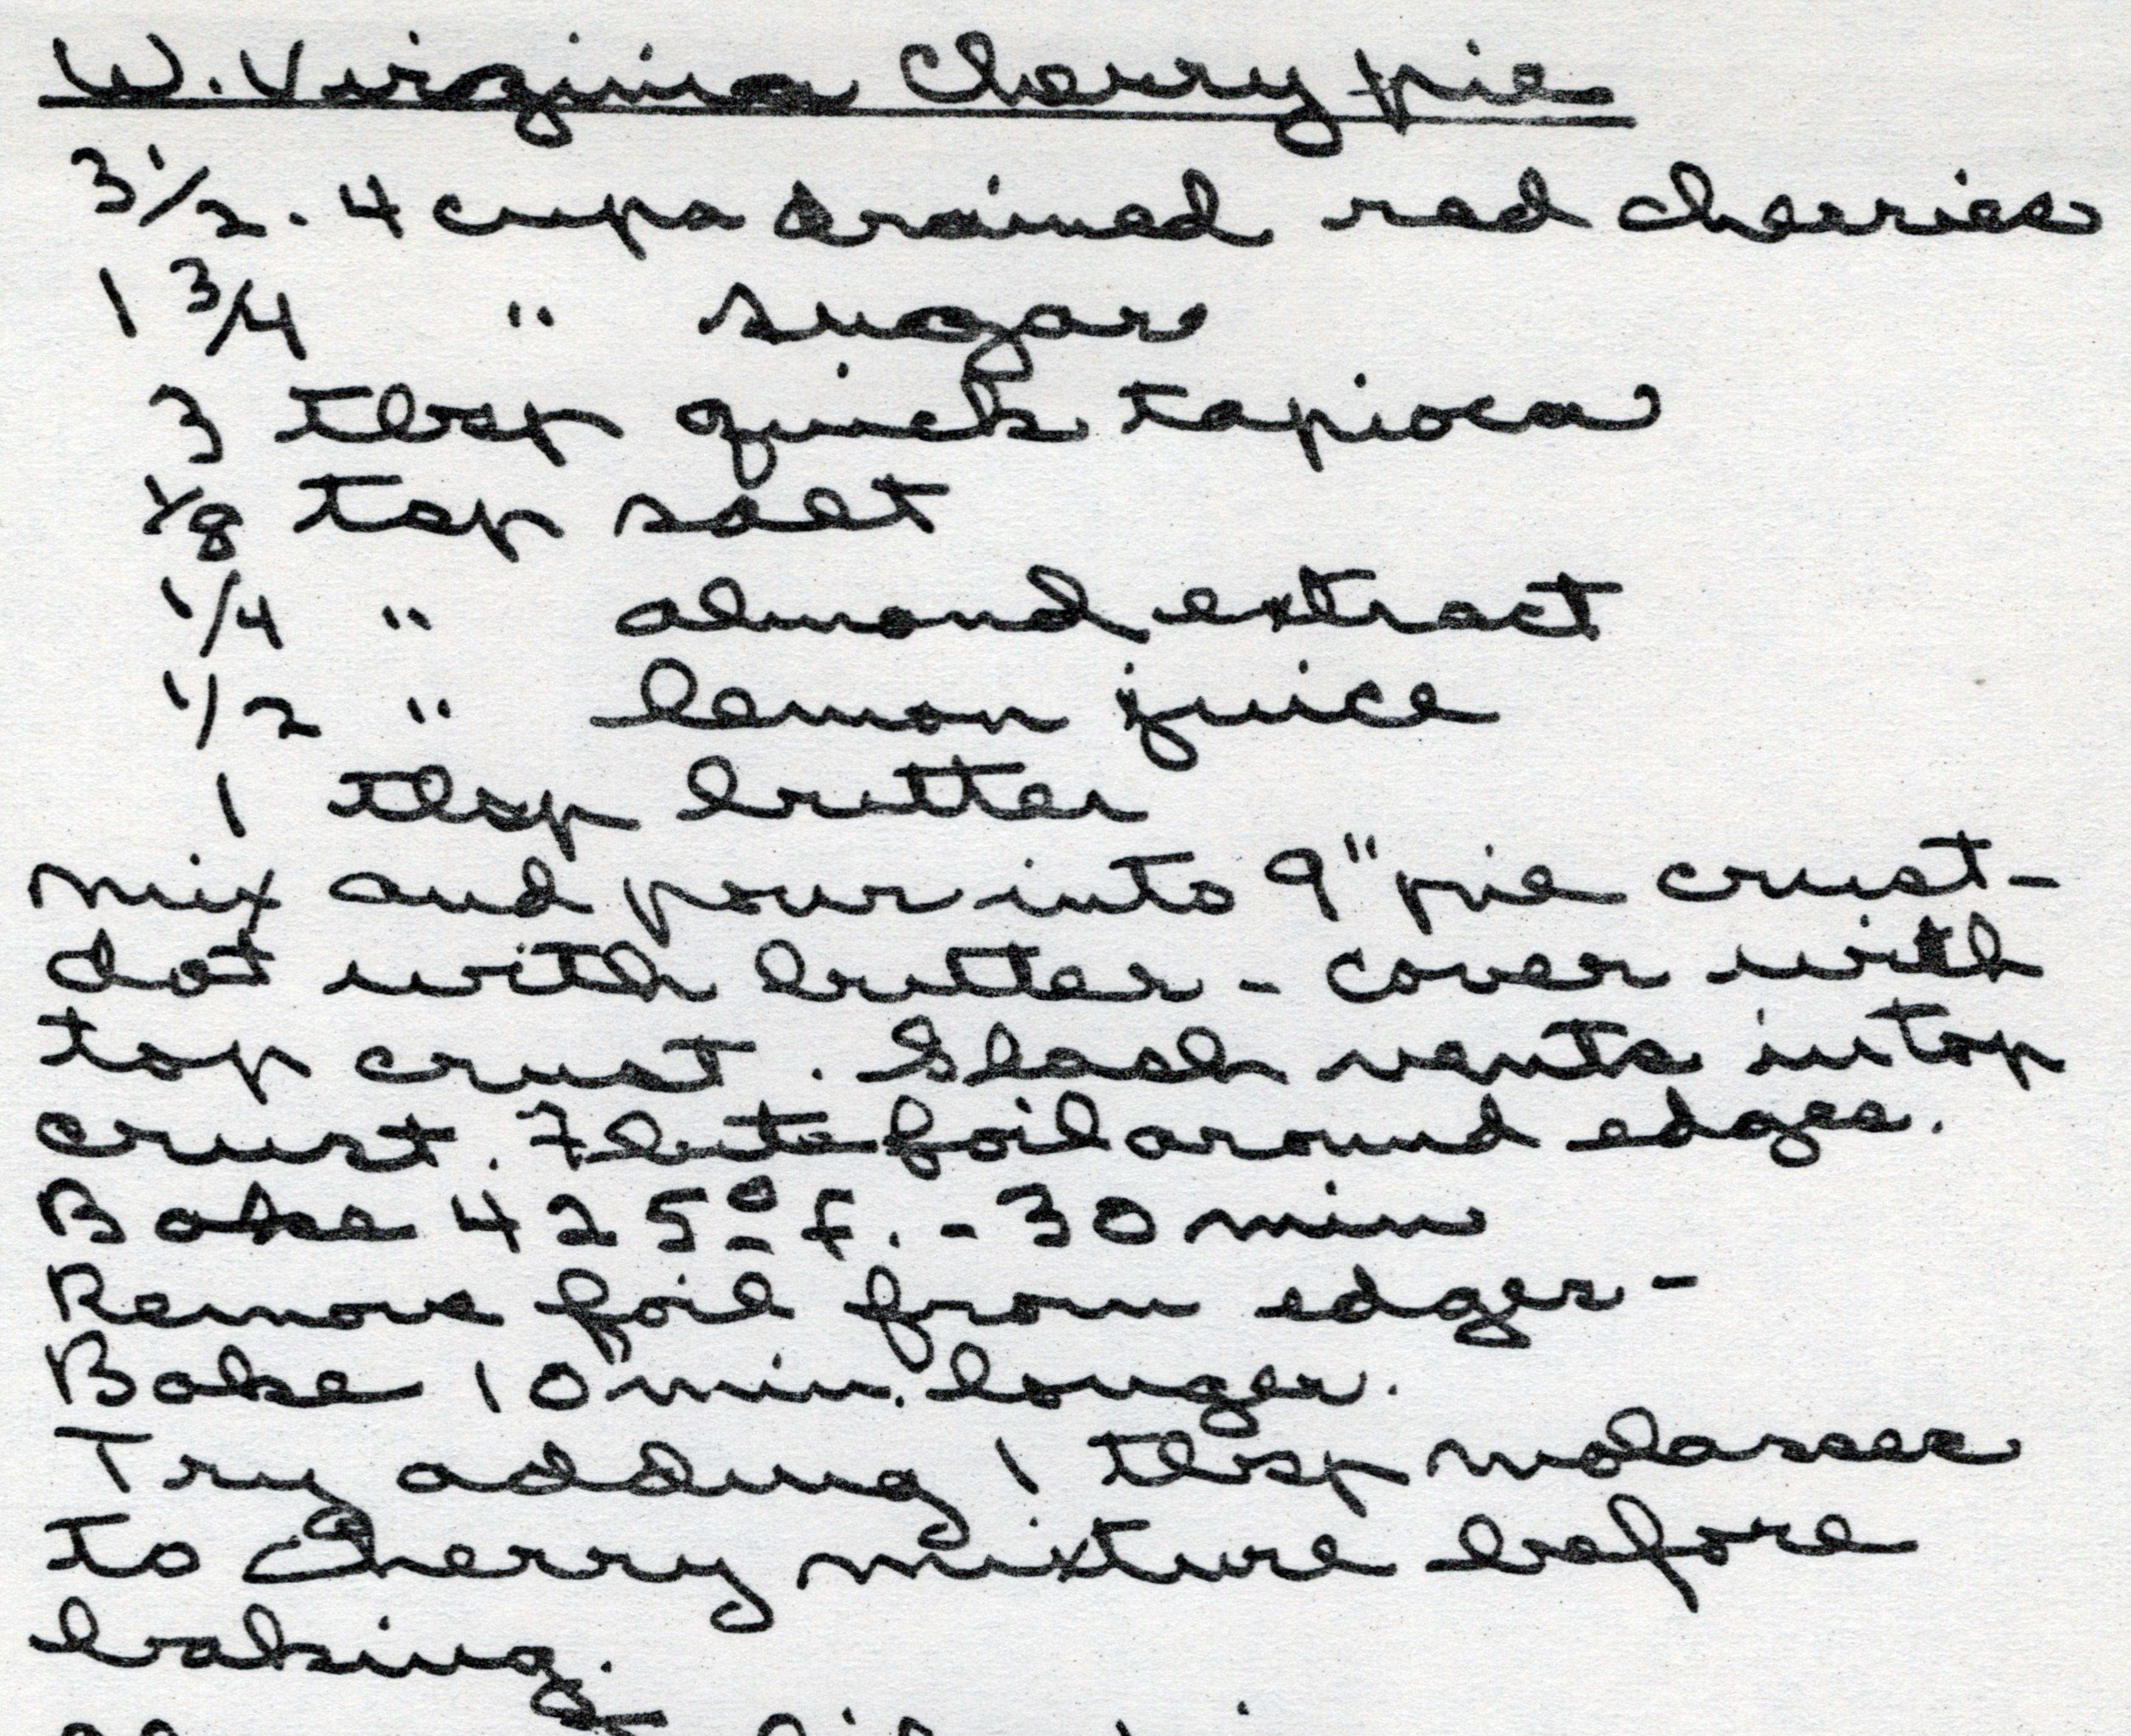 W. Virginia Cherry pie
3 1/2 - 4 cups drained red cherries
1 3/4 " sugar
3 tbsp quick tapioca
1/8 tsp salt
1/4 " almond extract
1/2 " lemon juice
1 tbsp butter
Mix and pour into 9" pie crust-
dot with butter - cover with
top crust. Slash vents in top
crust. Flute foil around edges.
Bake 425° F. - 30 min
Remove foil from edges -
Bake 10 min. longer.
Try adding 1 tbsp molasses
to Cherry mixture before
baking.